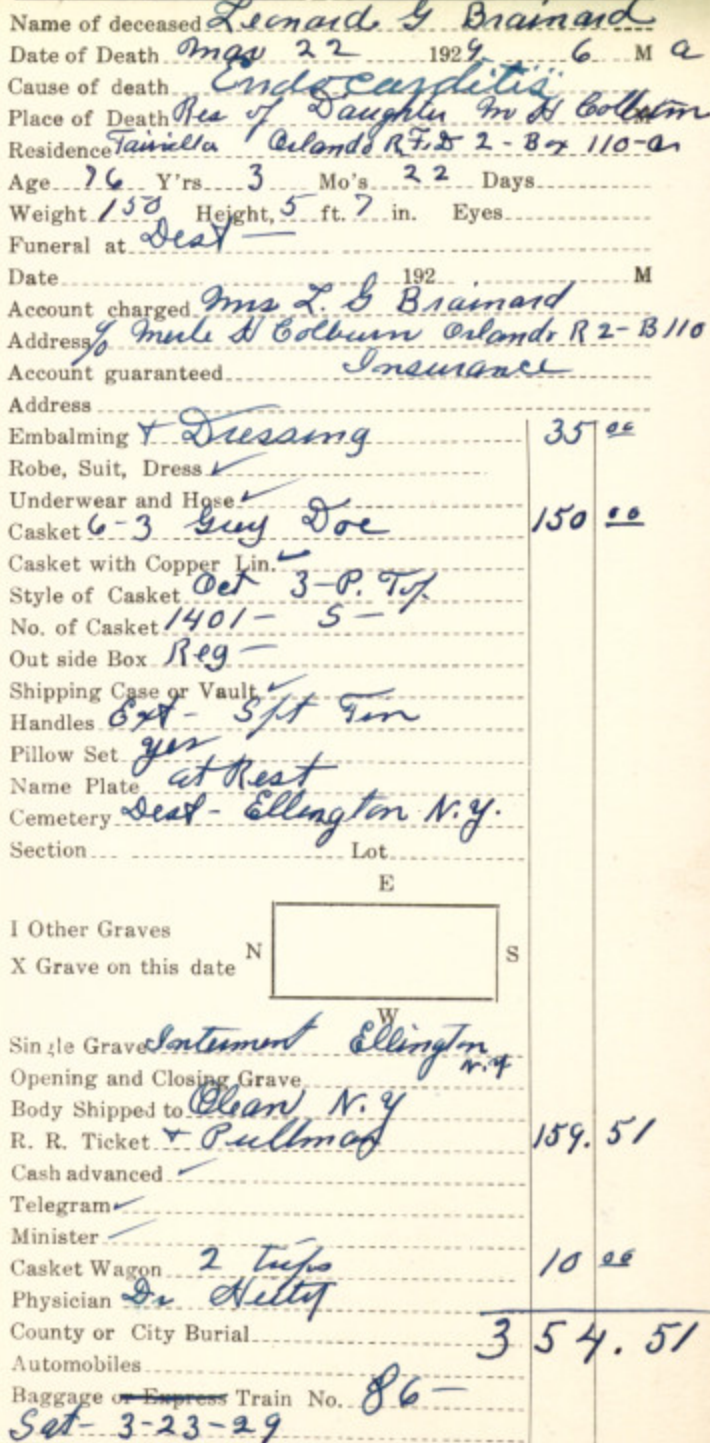 Name of deceased Leonard G Brainard
Date of Death Mar 22 1929 6 M a
Cause of death Endocarditis
Place of Death Res of Daughter M H Colburn
Residence Orlando R.F.D 2 - Box 110-a
Age 76 Y'rs 3 Mo's 22 Days
Weight 150 Height, 5 ft. 7 in. Eyes
Funeral at Dest —
Date 192 M
Account charged Mrs L. G Brainard
Address c/o Merle H Colburn Orlando R 2 - B 110
Account guaranteed Insurance
Address
Embalming + Dressing 35 00
Robe, Suit, Dress ✓
Underwear and Hose ✓
Casket 6-3 Grey Doe 150 00
Casket with Copper Lin. ✓
Style of Casket Oct 3-P. Top
No. of Casket 1401 - S -
Out side Box Reg —
Shipping Case or Vault ✓
Handles Ext - Spt Tin
Pillow Set yes
Name Plate at Rest
Cemetery Dest - Ellington N.Y.
Section Lot
E
I Other Graves
N S
X Grave on this date
W
Single Grave Interment Ellington N.Y
Opening and Closing Grave
Body Shipped to Olean N.Y
R. R. Ticket + Pullman 159.51
Cash advanced ✓
Telegram ✓
Minister ✓
Casket Wagon 2 trips 10 00
Physician Dr
County or City Burial 354.51
Automobiles
Baggage or Express Train No. 86 —
Sat - 3-23-29